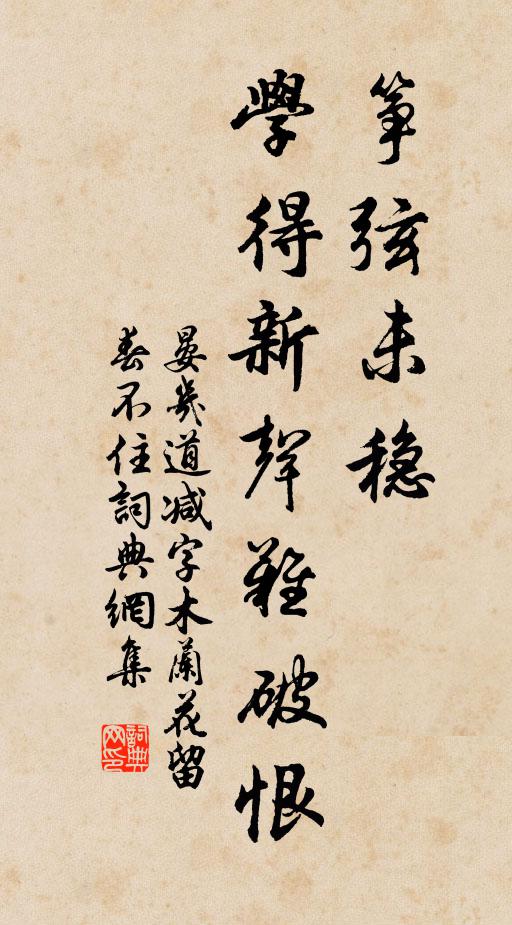 筝弦未穏
學得新聲難破恨
晏幾道减字木蘭花留
春不住詞典網集
詞典網印